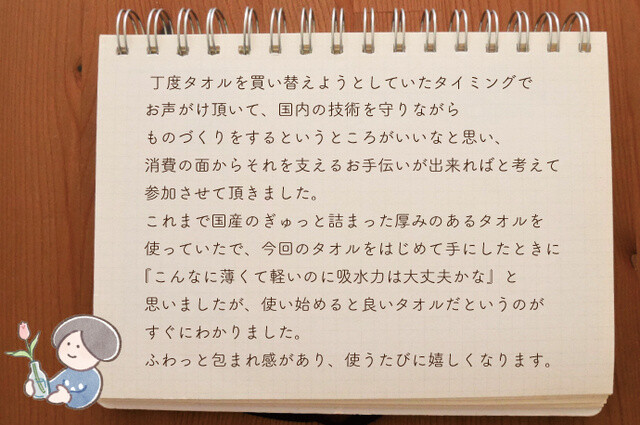 丁度タオルを買い替えようとしていたタイミングで
お声がけ頂いて、国内の技術を守りながら
ものづくりをするというところがいいなと思い、
消費の面からそれを支えるお手伝いが出来ればと考えて
参加させて頂きました。
これまで国産のぎゅっと詰まった厚みのあるタオルを
使っていたで、今回のタオルをはじめて手にしたときに
『こんなに薄くて軽いのに吸水力は大丈夫かな』と
思いましたが、使い始めると良いタオルだというのが
すぐにわかりました。
ふわっと包まれ感があり、使うたびに嬉しくなります。